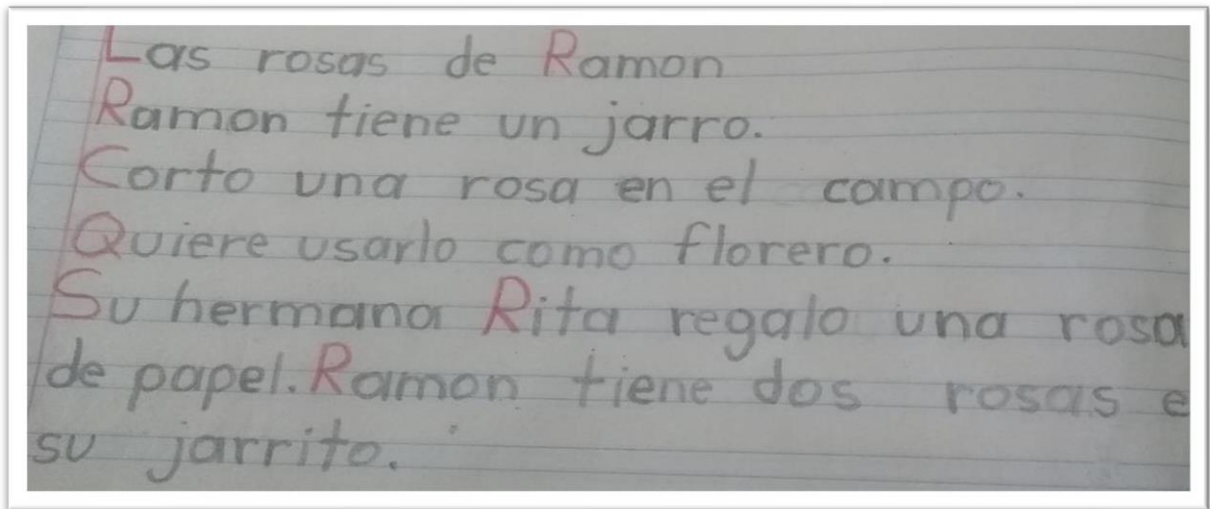 Las rosas de Ramon
Ramon tiene un jarro.
Corto una rosa en el campo.
Quiere usarlo como florero.
Su hermana Rita regalo una rosa
de papel. Ramon tiene dos rosas e
su jarrito.